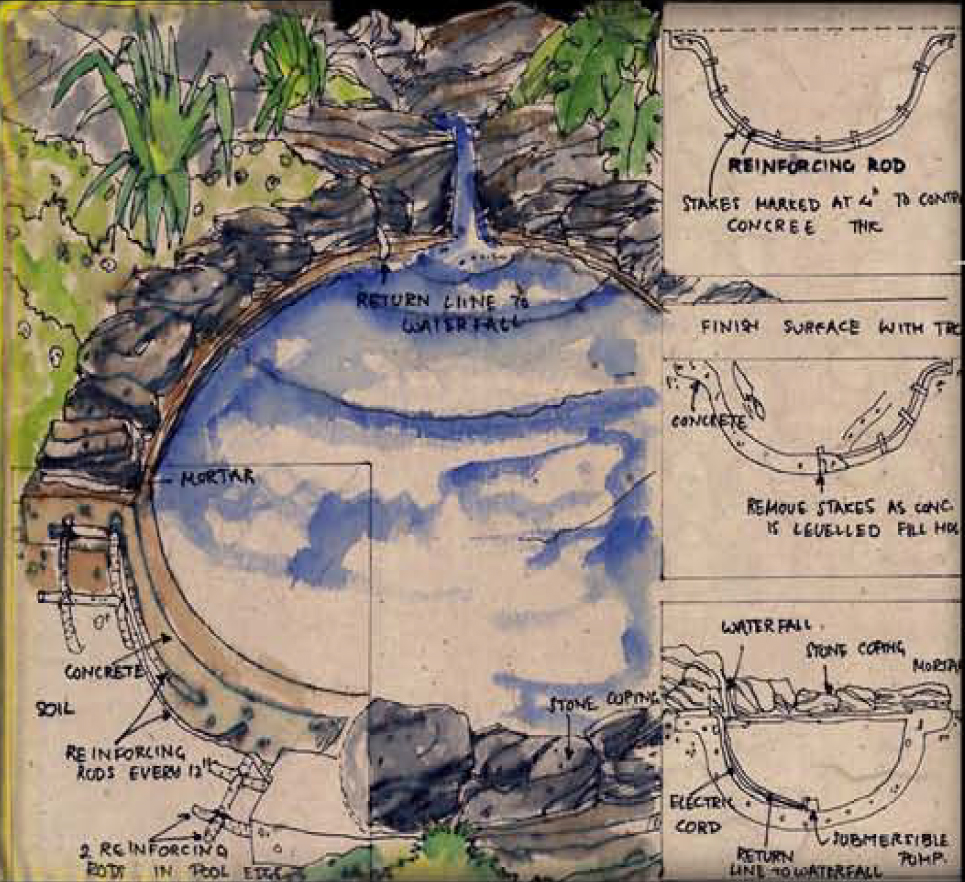 RETURN LIINE TO
WATERFALL
MORTAR
CONCRETE
SOIL
REINFORCING
RODS EVERY 12"
2 REINFORCING
RODS IN POOL EDGE
STONE COPING
REINFORCING ROD
STAKES MARKED AT 4" TO CONTR
CONCREE THK
FINISH SURFACE WITH TRO
CONCRETE
REMOVE STAKES AS CONC.
IS LEVELLED FILL HOL
WATERFALL
STONE COPING
MORTAR
ELECTRIC
CORD
SUBMERSIBLE
PUMP.
RETURN
LINE TO WATERFALL